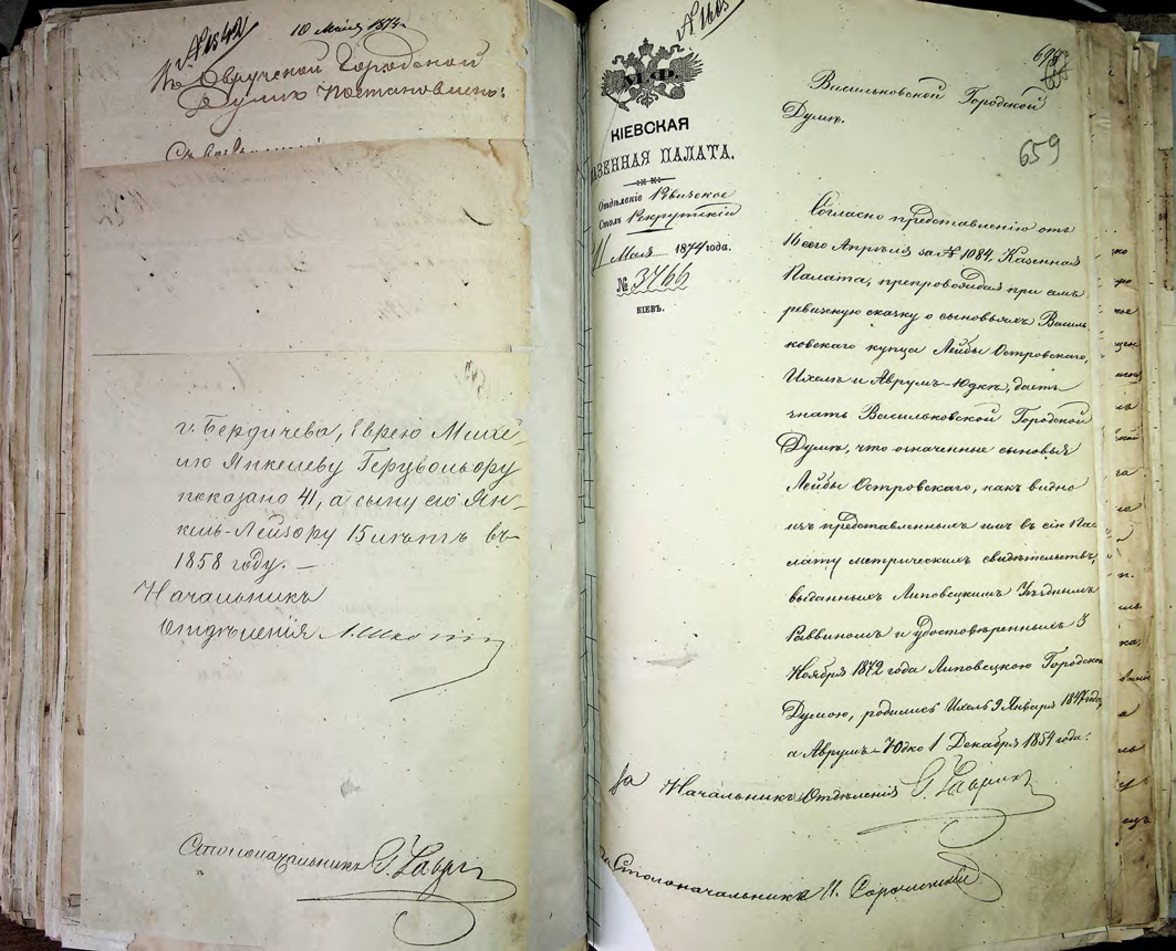 № 1542
10 Мая 1874 г.
Въ Овручской Городской
Думѣ Постановлено:
г. Бердичева, Еврею Михе-
лю Янкелеву
показано 41, а сыну его Ян-
кель-Лейзору 15 лѣтъ въ
1858 году. —
Начальникъ
Отдѣленія
Столоначальникъ
№ 1605
М.Ф.
КІЕВСКАЯ
КАЗЕННАЯ ПАЛАТА.
Отдѣленіе Ревизское
Столъ Рекрутскій
11 Мая 1874 года.
№ 3466
КІЕВЪ.
Васильковской Городской
Думѣ.
659
Согласно представленію отъ
16 сего Апрѣля за № 1084, Казенная
Палата, препровождая при семъ
ревизскую сказку о сыновьяхъ Василь
ковскаго купца Лейбы Островскаго,
Ихелѣ и Аврумъ-Юдкѣ, даетъ
знать Васильковской Городской
Думѣ, что означенные сыновья
Лейбы Островскаго, какъ видно
изъ представленныхъ имъ въ сію Па
лату метрическихъ свидѣтельствъ,
выданныхъ Липовецкимъ Уѣзднымъ
Раввиномъ и удостовѣренныхъ 3
Ноября 1872 года Липовецкою Городскою
Думою, родились Ихель 9 Января 1847 года,
а Аврумъ-Юдко 1 Декабря 1854 года.
За Начальникъ Отдѣленія
За Столоначальника И.